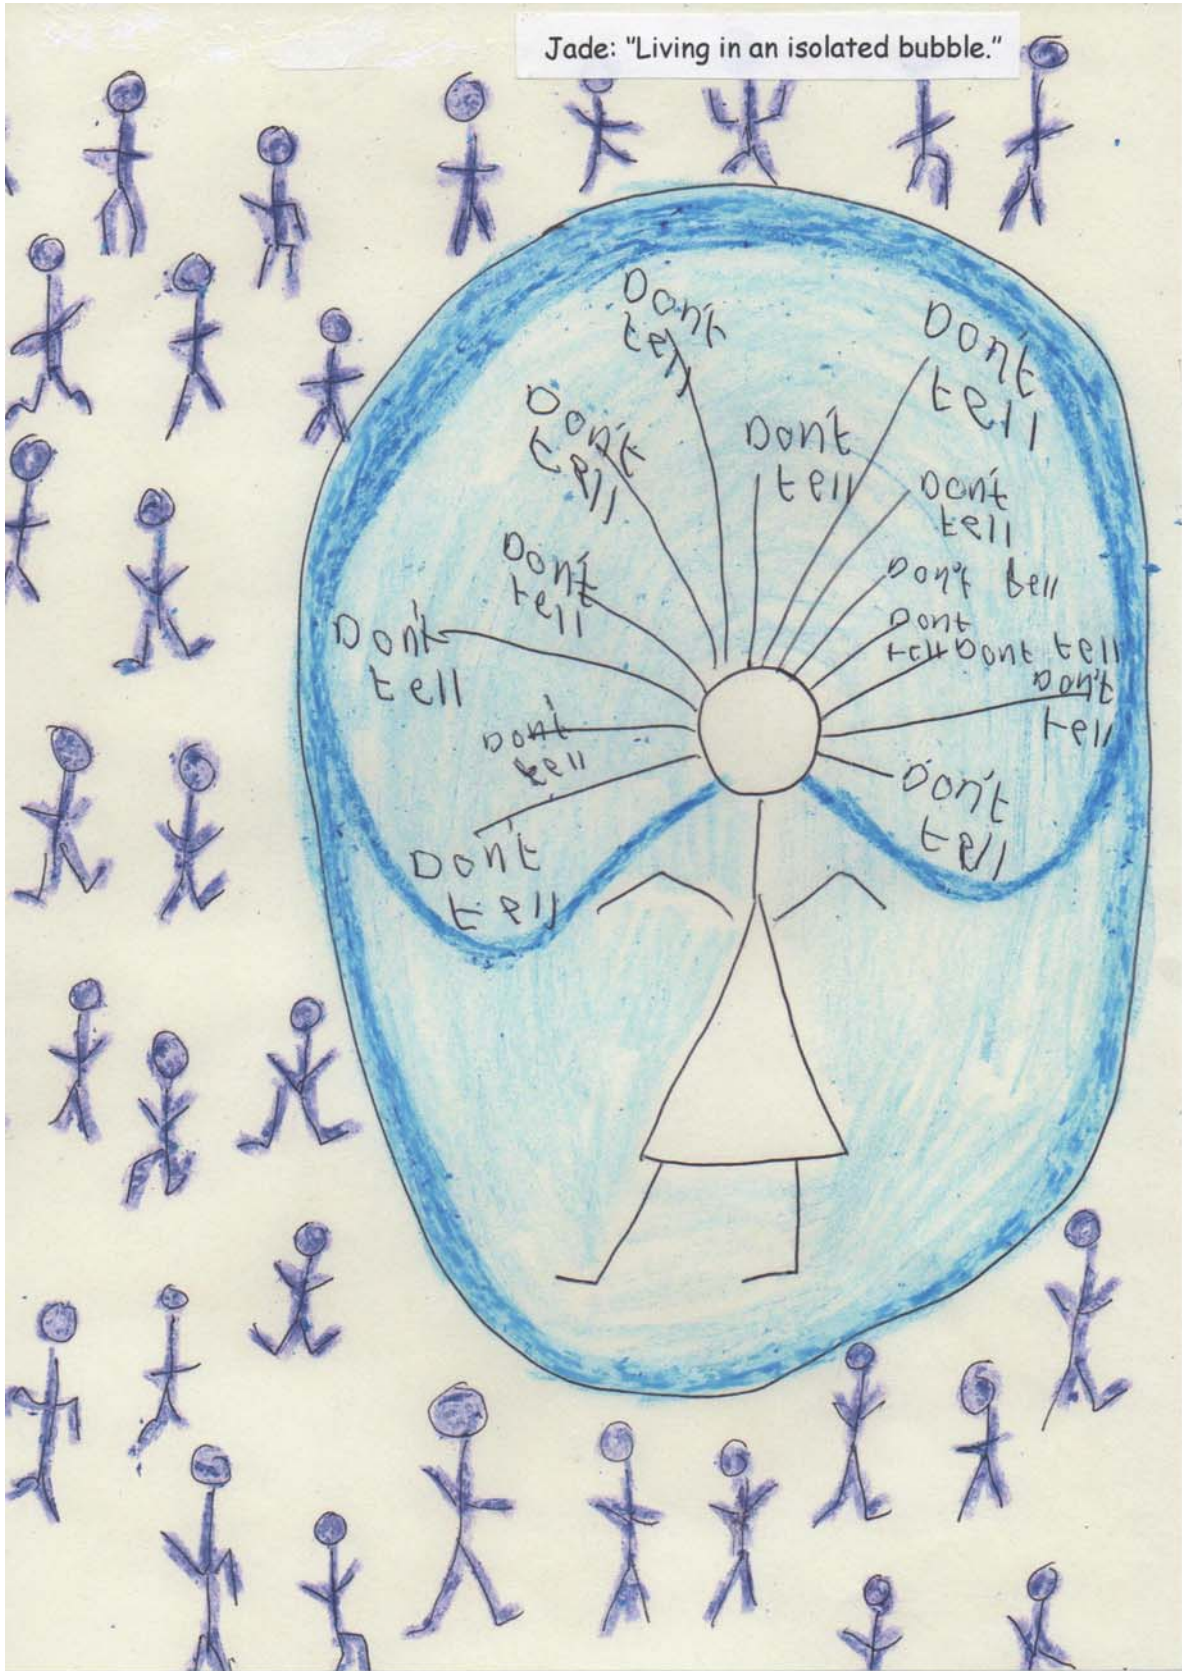 Jade: "Living in an isolated bubble."
Don't
tell
Don't
tell
Don't
tell
Don't
tell
Don't
tell
Don't
tell
Don't tell
Dont
tell
Dont tell
Don't
tell
Don't
tell
Don't
tell
Don't
tell
Don't
tell